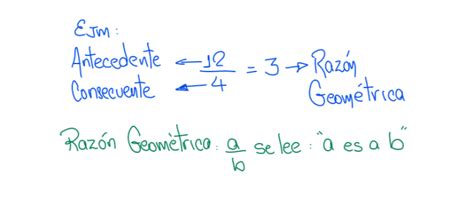 Ejm:
Antecedente ← 12/4 = 3 → Razón
Consecuente ← Geométrica
Razón Geométrica: a/b se lee: "a es a b"